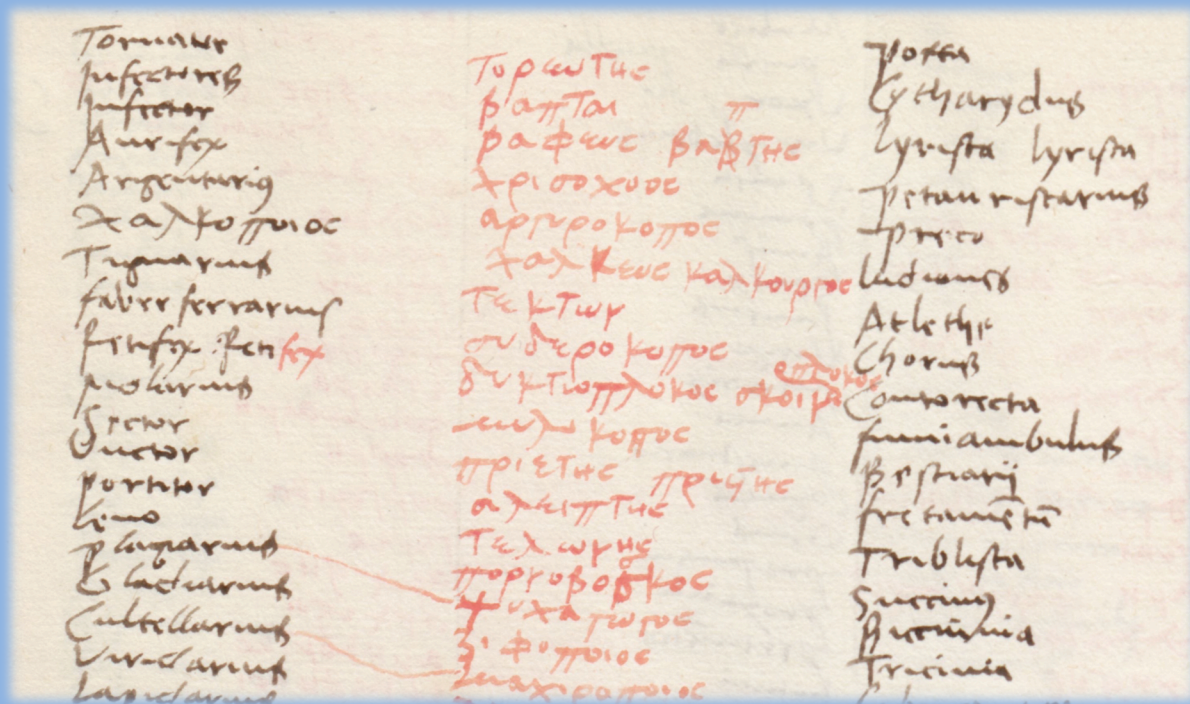 Tornator
Infectores
Infector
Aurifex
Argentarius
χαλκοποιος
Tignarius
faber ferrarius
Retifex Retifex
Molarius
Sector
Unctor
portitor
Leno
plagiarius
Gladiarius
Cultellarius
Viridarius
Lapidarius
τορευτης
βαπται
βαφευς βαβτης π
χρισοχοος
αργυροκοπος
χαλκευς καλκουργος
τεκτων
συδεροκοπος
δυκτιοπλοκος σκοινοπλοκος
μυλοκοπος
πριετης πριστης
αλειπτης
τελωνης
πορνοβοσκος
ψυχαγωγος
ξιφοποιος
μαχιραποιος
poeta
Cytharydus
lyrista lyrista
petauristarius
preco
ludiones
Atlethe
Chorus
Contorecta
funiambulus
Bestiarii
fretamentum
Triblista
Succinus
Tricinia